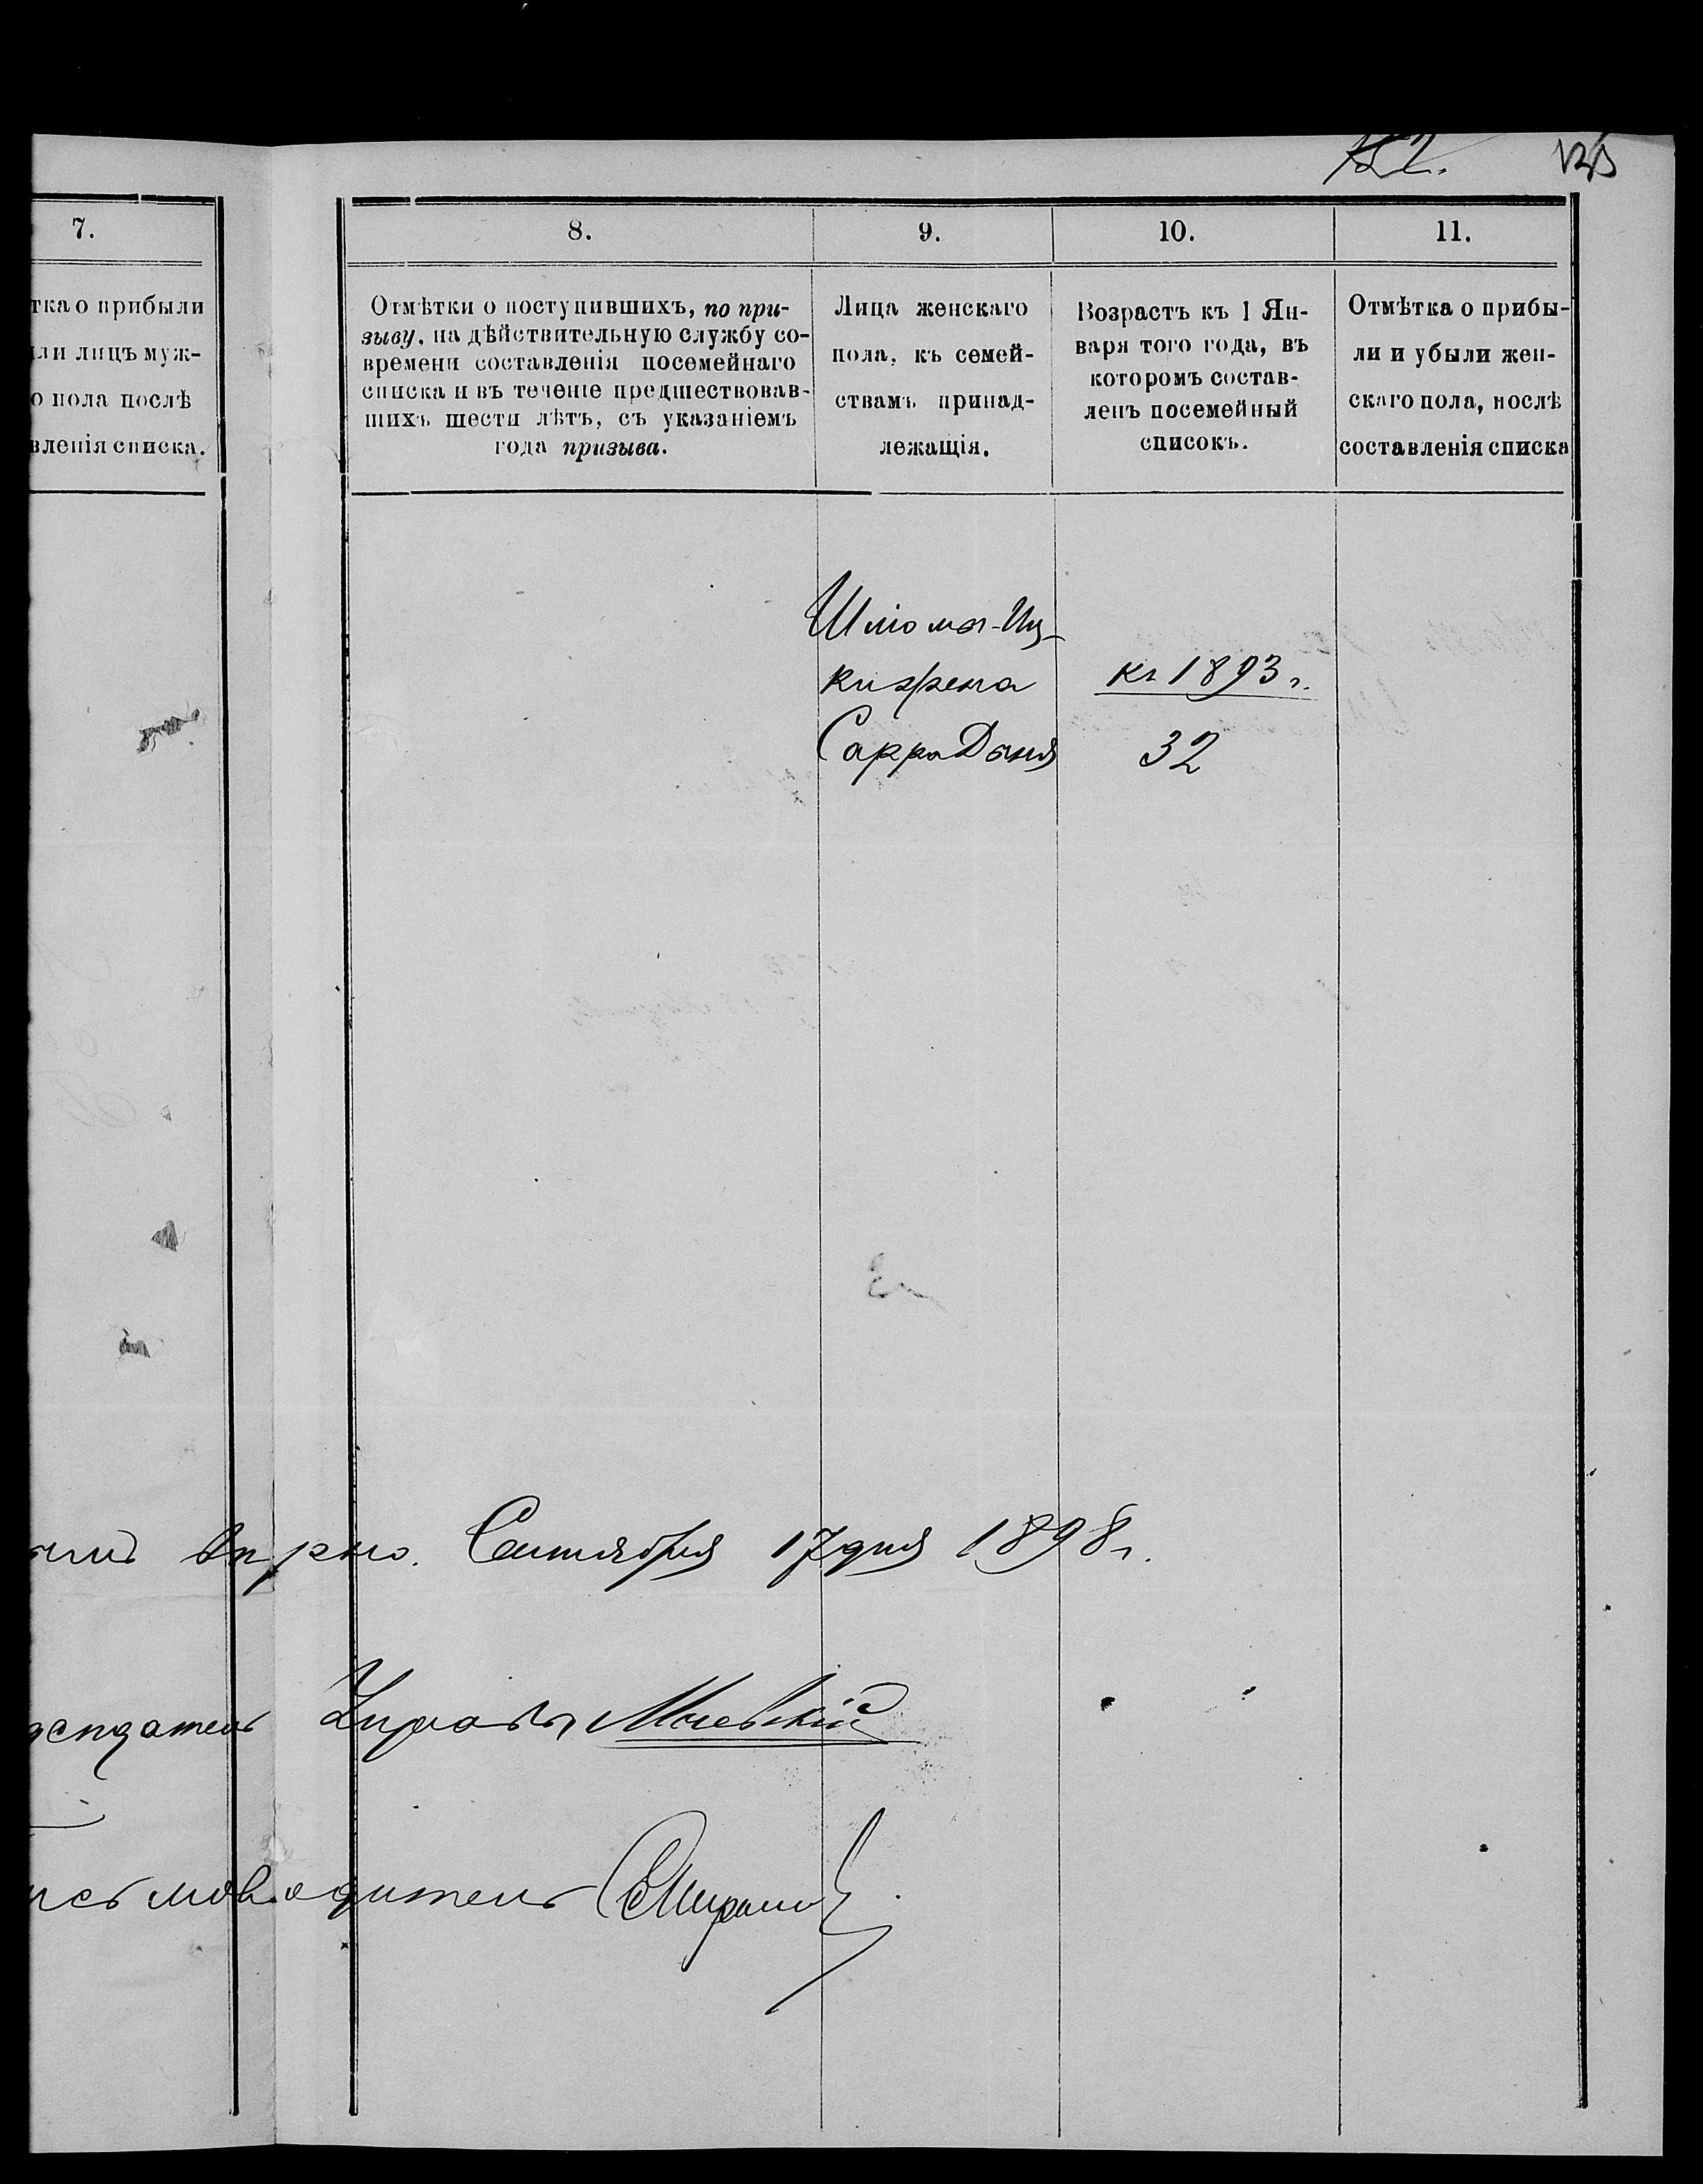 152.
7.
8.
9.
10.
11.
тка о прибыли
ли лицъ муж-
о пола послѣ
вленія списка.
Отмѣтки о поступившихъ, по при-
зыву, на дѣйствительную службу со-
времени составленія посемейнаго
списка и въ теченіе предшествовав-
шихъ шести лѣтъ, съ указаніемъ
года призыва.
Лица женскаго
пола, къ семей-
ствамъ принад-
лежащія.
Возрастъ къ 1 Ян-
варя того года, въ
которомъ состав-
ленъ посемейный
списокъ.
Отмѣтка о прибы-
ли и убыли жен-
скаго пола, послѣ
составленія списка
Шлюма-Иц-
ки жена
къ 1893 г.
Сарра Даня
32
вѣрно. Сентября 17 дня 1898 г.
дсѣдатель Управы Маевскій
исьмоводитель